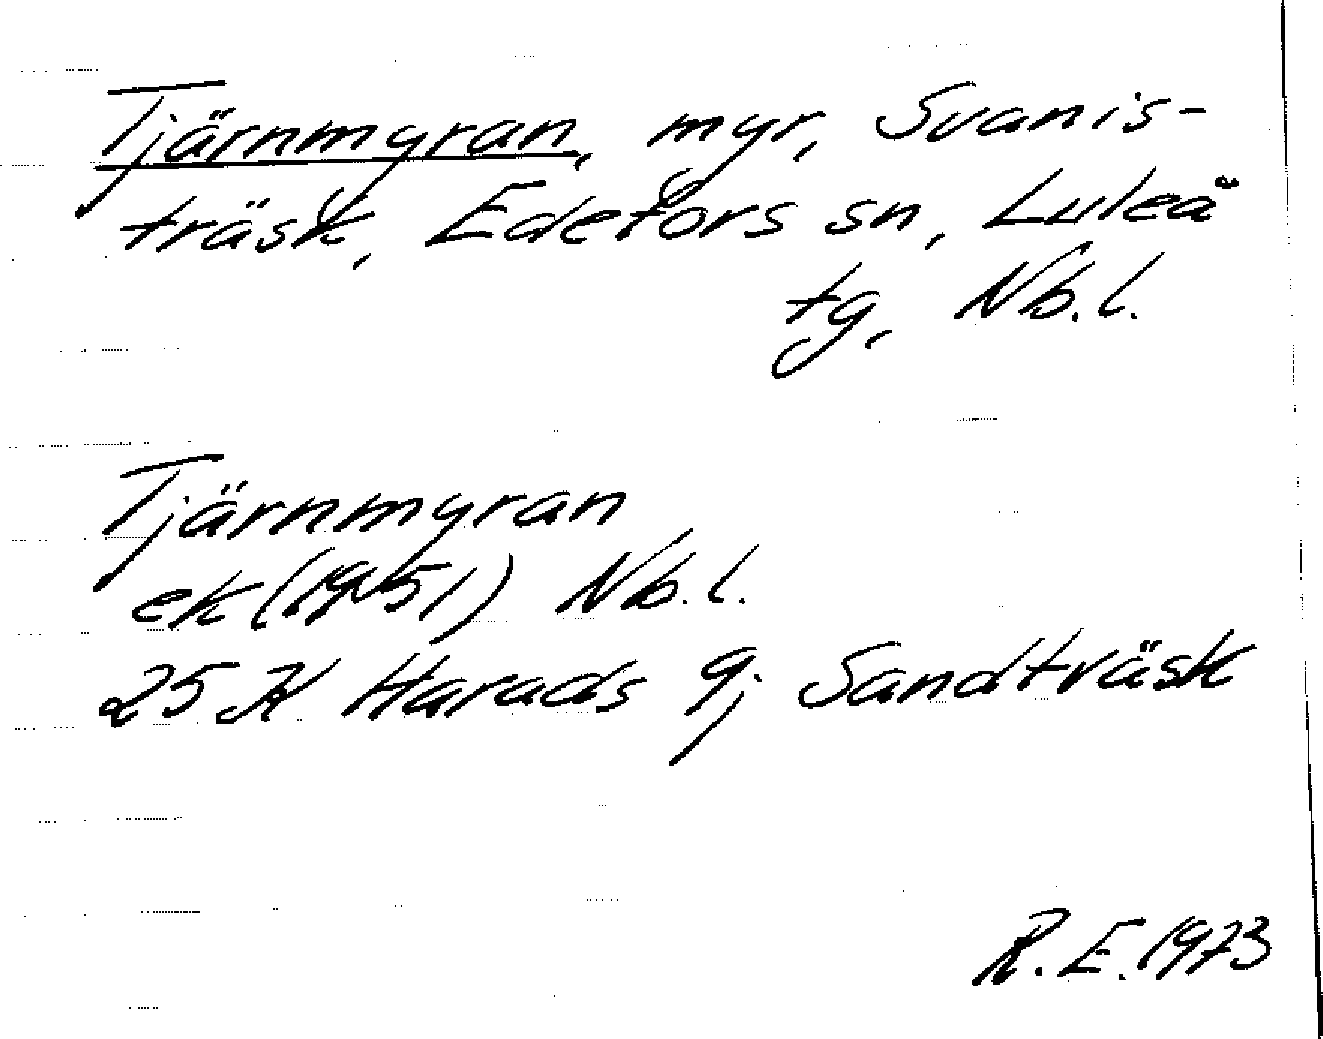 Tjärnmyran, myr, Svanis-
träsk, Edefors sn, Luleå
tg, Nb.l.
Tjärnmyran
ek (1951) Nb.l.
25 K Harads 9j Sandträsk
R. E. 1973